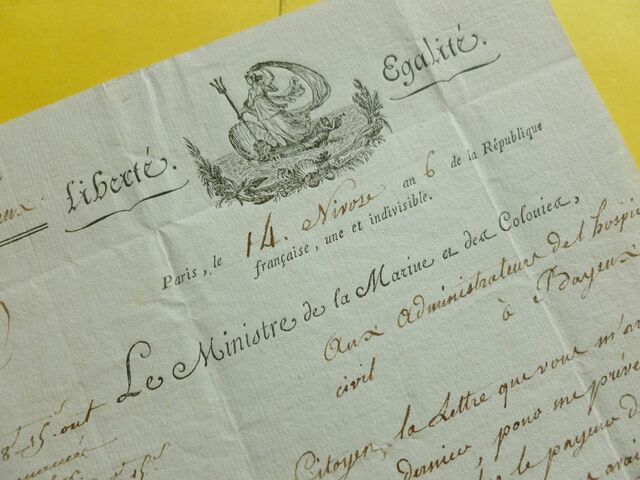 Liberté. Egalité.
Paris, le 14. Nivose an 6 de la République
française, une et indivisible.
Le Ministre de la Marine et des Colonies,
Aux Administrateurs de l'hospice
civil à Bayeux
Citoyen, la Lettre que vous m'
dernier, pour me
le payeur d
8s 15d. ont